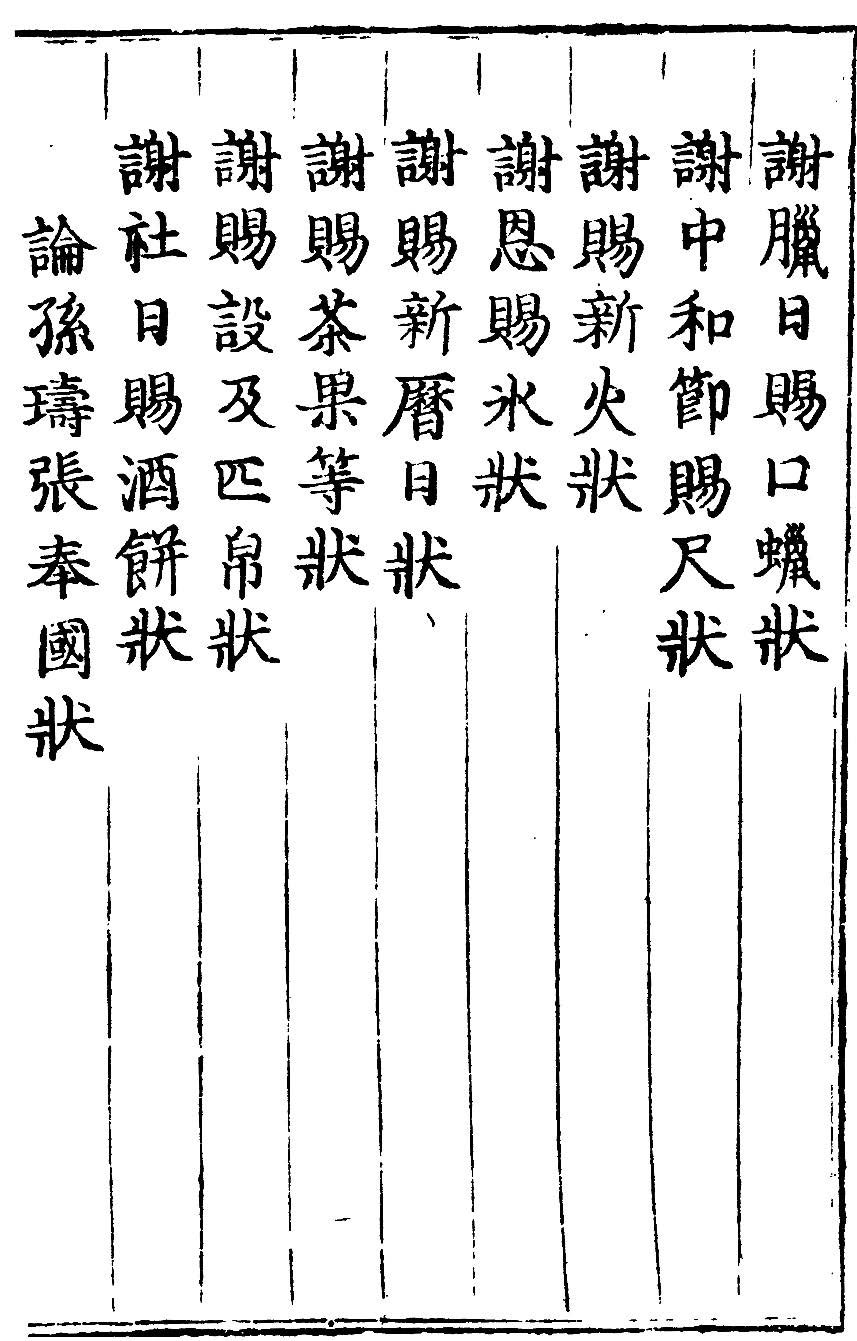 謝臘日賜口蠟狀
謝中和節賜尺狀
謝賜新火狀
謝恩賜氷狀
謝賜新曆日狀
謝賜茶果等狀
謝賜設及匹帛狀
謝社日賜酒餅狀
論孫璹張奉國狀